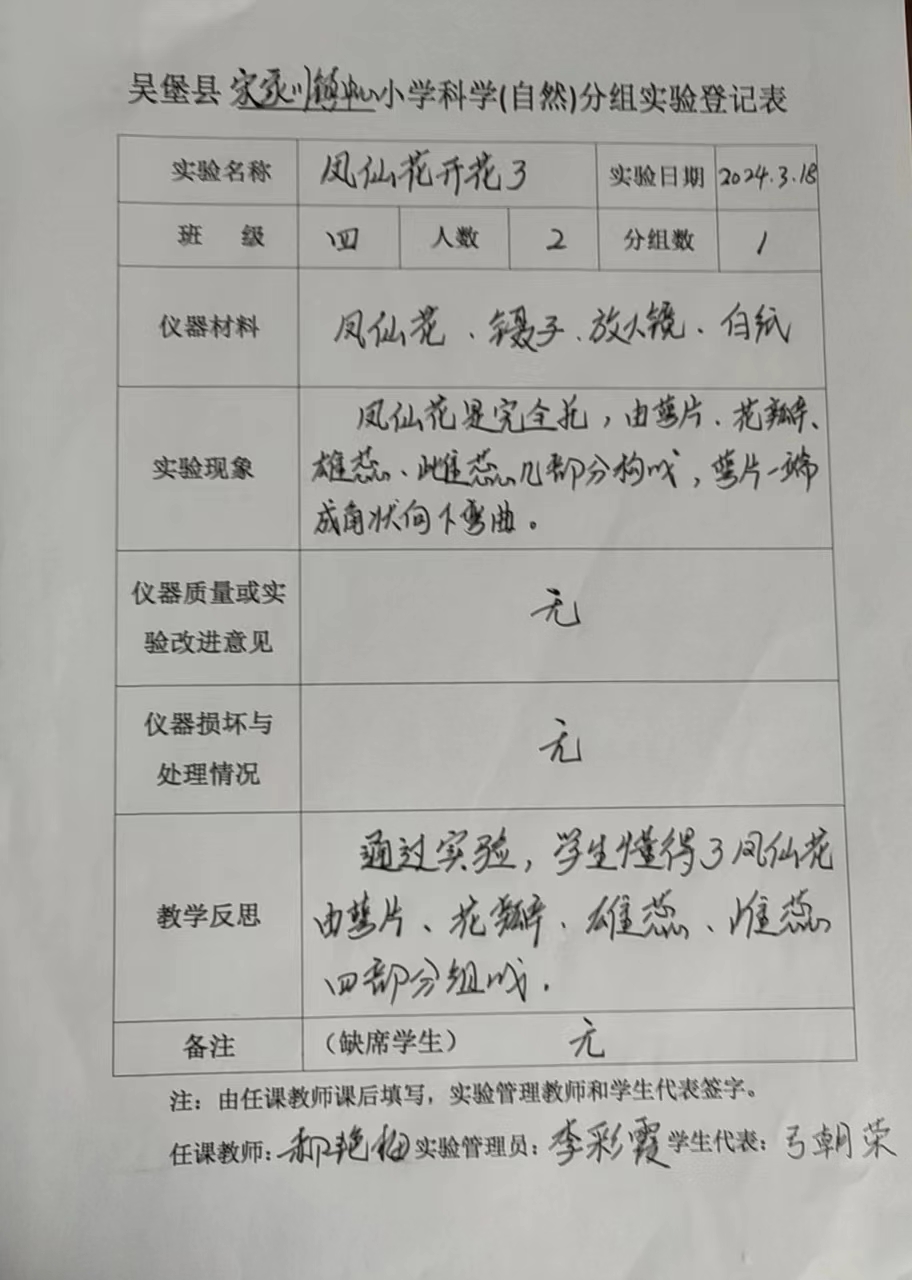 吴堡县宋家川镇中心小学科学(自然)分组实验登记表
实验名称 凤仙花开花了 实验日期 2024.3.18
班 级 四 人数 2 分组数 1
仪器材料 凤仙花、镊子、放大镜、白纸
实验现象 凤仙花是完全花，由萼片、花瓣、
雄蕊、雌蕊几部分构成，萼片一端
成角状向下弯曲。
仪器质量或实
验改进意见 无
仪器损坏与
处理情况 无
教学反思 通过实验，学生懂得了凤仙花
由萼片、花瓣、雄蕊、雌蕊
四部分组成.
备注 （缺席学生） 无
注：由任课教师课后填写，实验管理教师和学生代表签字。
任课教师：郝艳梅 实验管理员：李彩霞 学生代表：弓朝荣